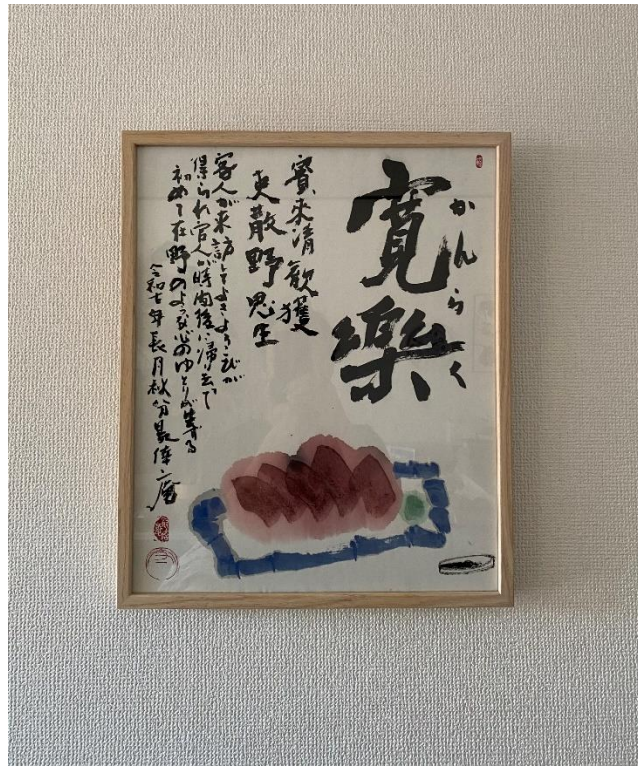 寛樂
かんらく
賓来清歓獲
吏散野思生
客人が来訪してよきよろこびが
得られ官人が時間後に帰去って
初めて在野のような心のゆとりが生ずる
令和七年長月秋分